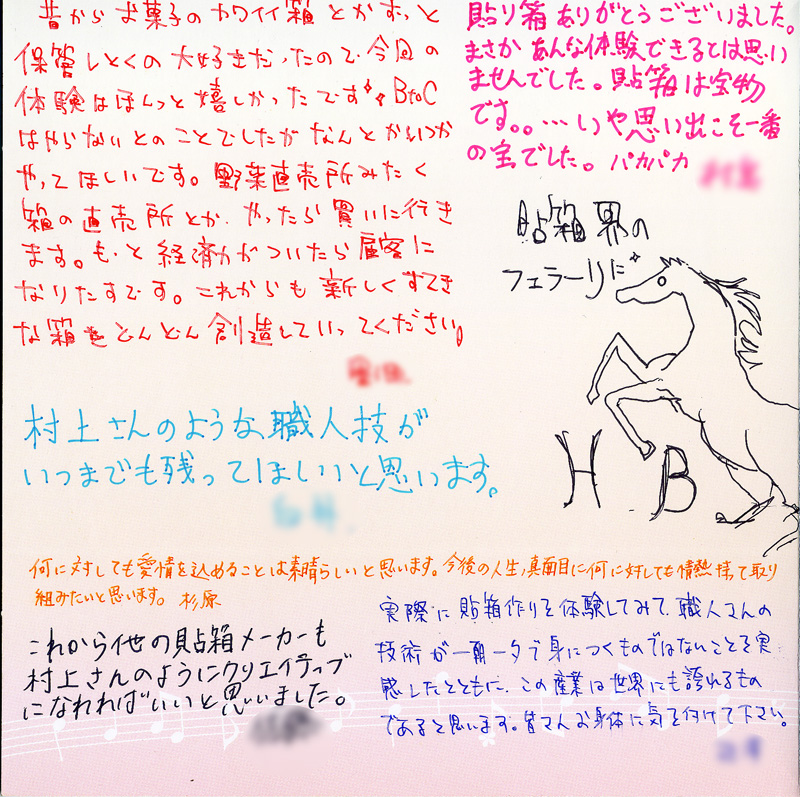 昔からお菓子のカワイイ箱とかずっと
保管しとくの大好きだったので今回の
体験はほんっと嬉しかったです BtoC
はやらないとのことでしたがなんとかいつか
やってほしいです。野菜直売所みたく
箱の直売所とか、やったら買いに行き
ます。もっと経済力がついたら顧客に
なりたすです。これからも新しくすてき
な箱をどんどん創造していってください。
貼り箱ありがとうございました。
まさかあんな体験できるとは思い
ませんでした。貼箱は宝物
です。。…いや思い出こそ一番
の宝でした。パカパカ
貼箱界の
フェラーリに
H B
村上さんのような職人技が
いつまでも残ってほしいいと思います。
何に対しても愛情を込めることは素晴らしいと思います。今後の人生、真面目に何に対しても情熱持って取り
組みたいと思います。 杉原
これから他の貼箱メーカーも
村上さんのようにクリエイティブ
になれればいいと思いました。
実際に貼箱作りを体験してみて、職人さんの
技術が一朝一夕で身につくものではないことを実
感したとともに、この産業は世界にも誇れるもの
であると思います。皆さんお身体に気を付けて下さい。